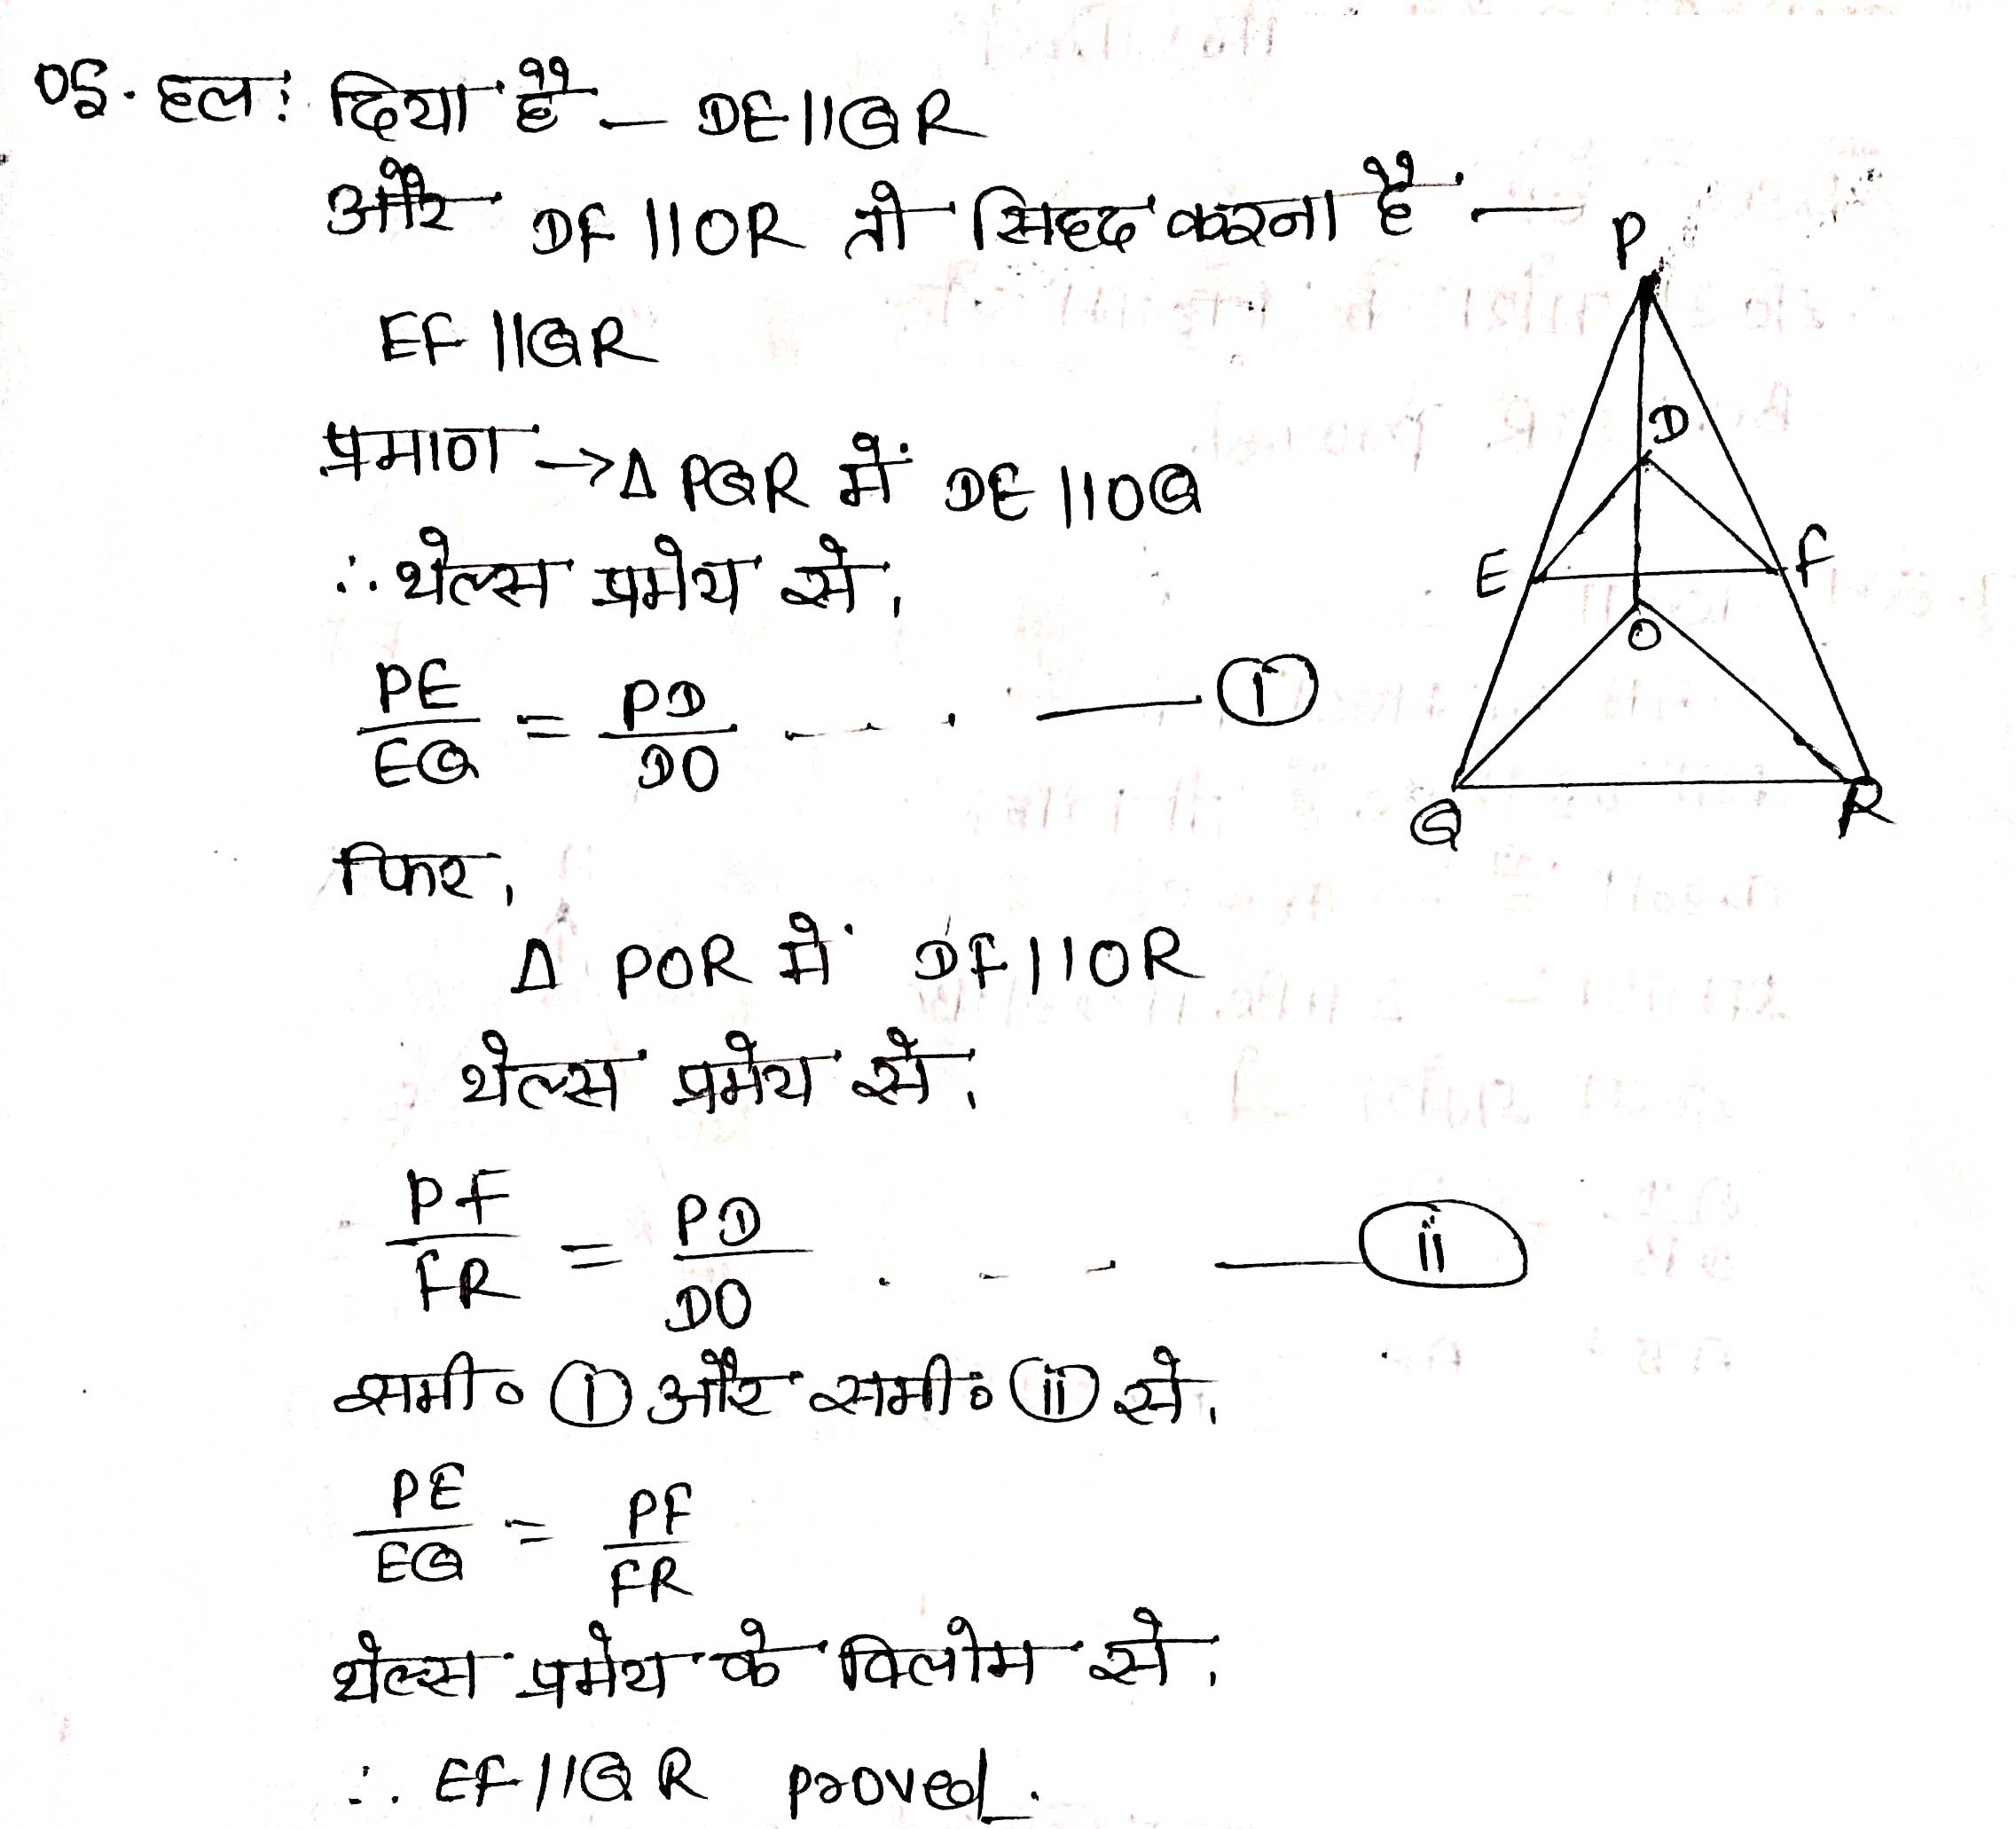 05. हलः दिया है - DE||QR
और DF ||OR तो सिद्ध करना है -
EF ||QR
प्रमाण → Δ PQR में DE ||OQ
∴ थेल्स प्रमेय से,
PE/EQ = PD/DO .... — (i)
फिर,
Δ POR में DF||OR
थेल्स प्रमेय से,
PF/FR = PD/DO .... — (ii)
समी० (i) और समी० (ii) से,
PE/EQ = PF/FR
थेल्स प्रमेय के विलोम से,
∴ EF||QR proved.
P
D
E
F
O
Q
R